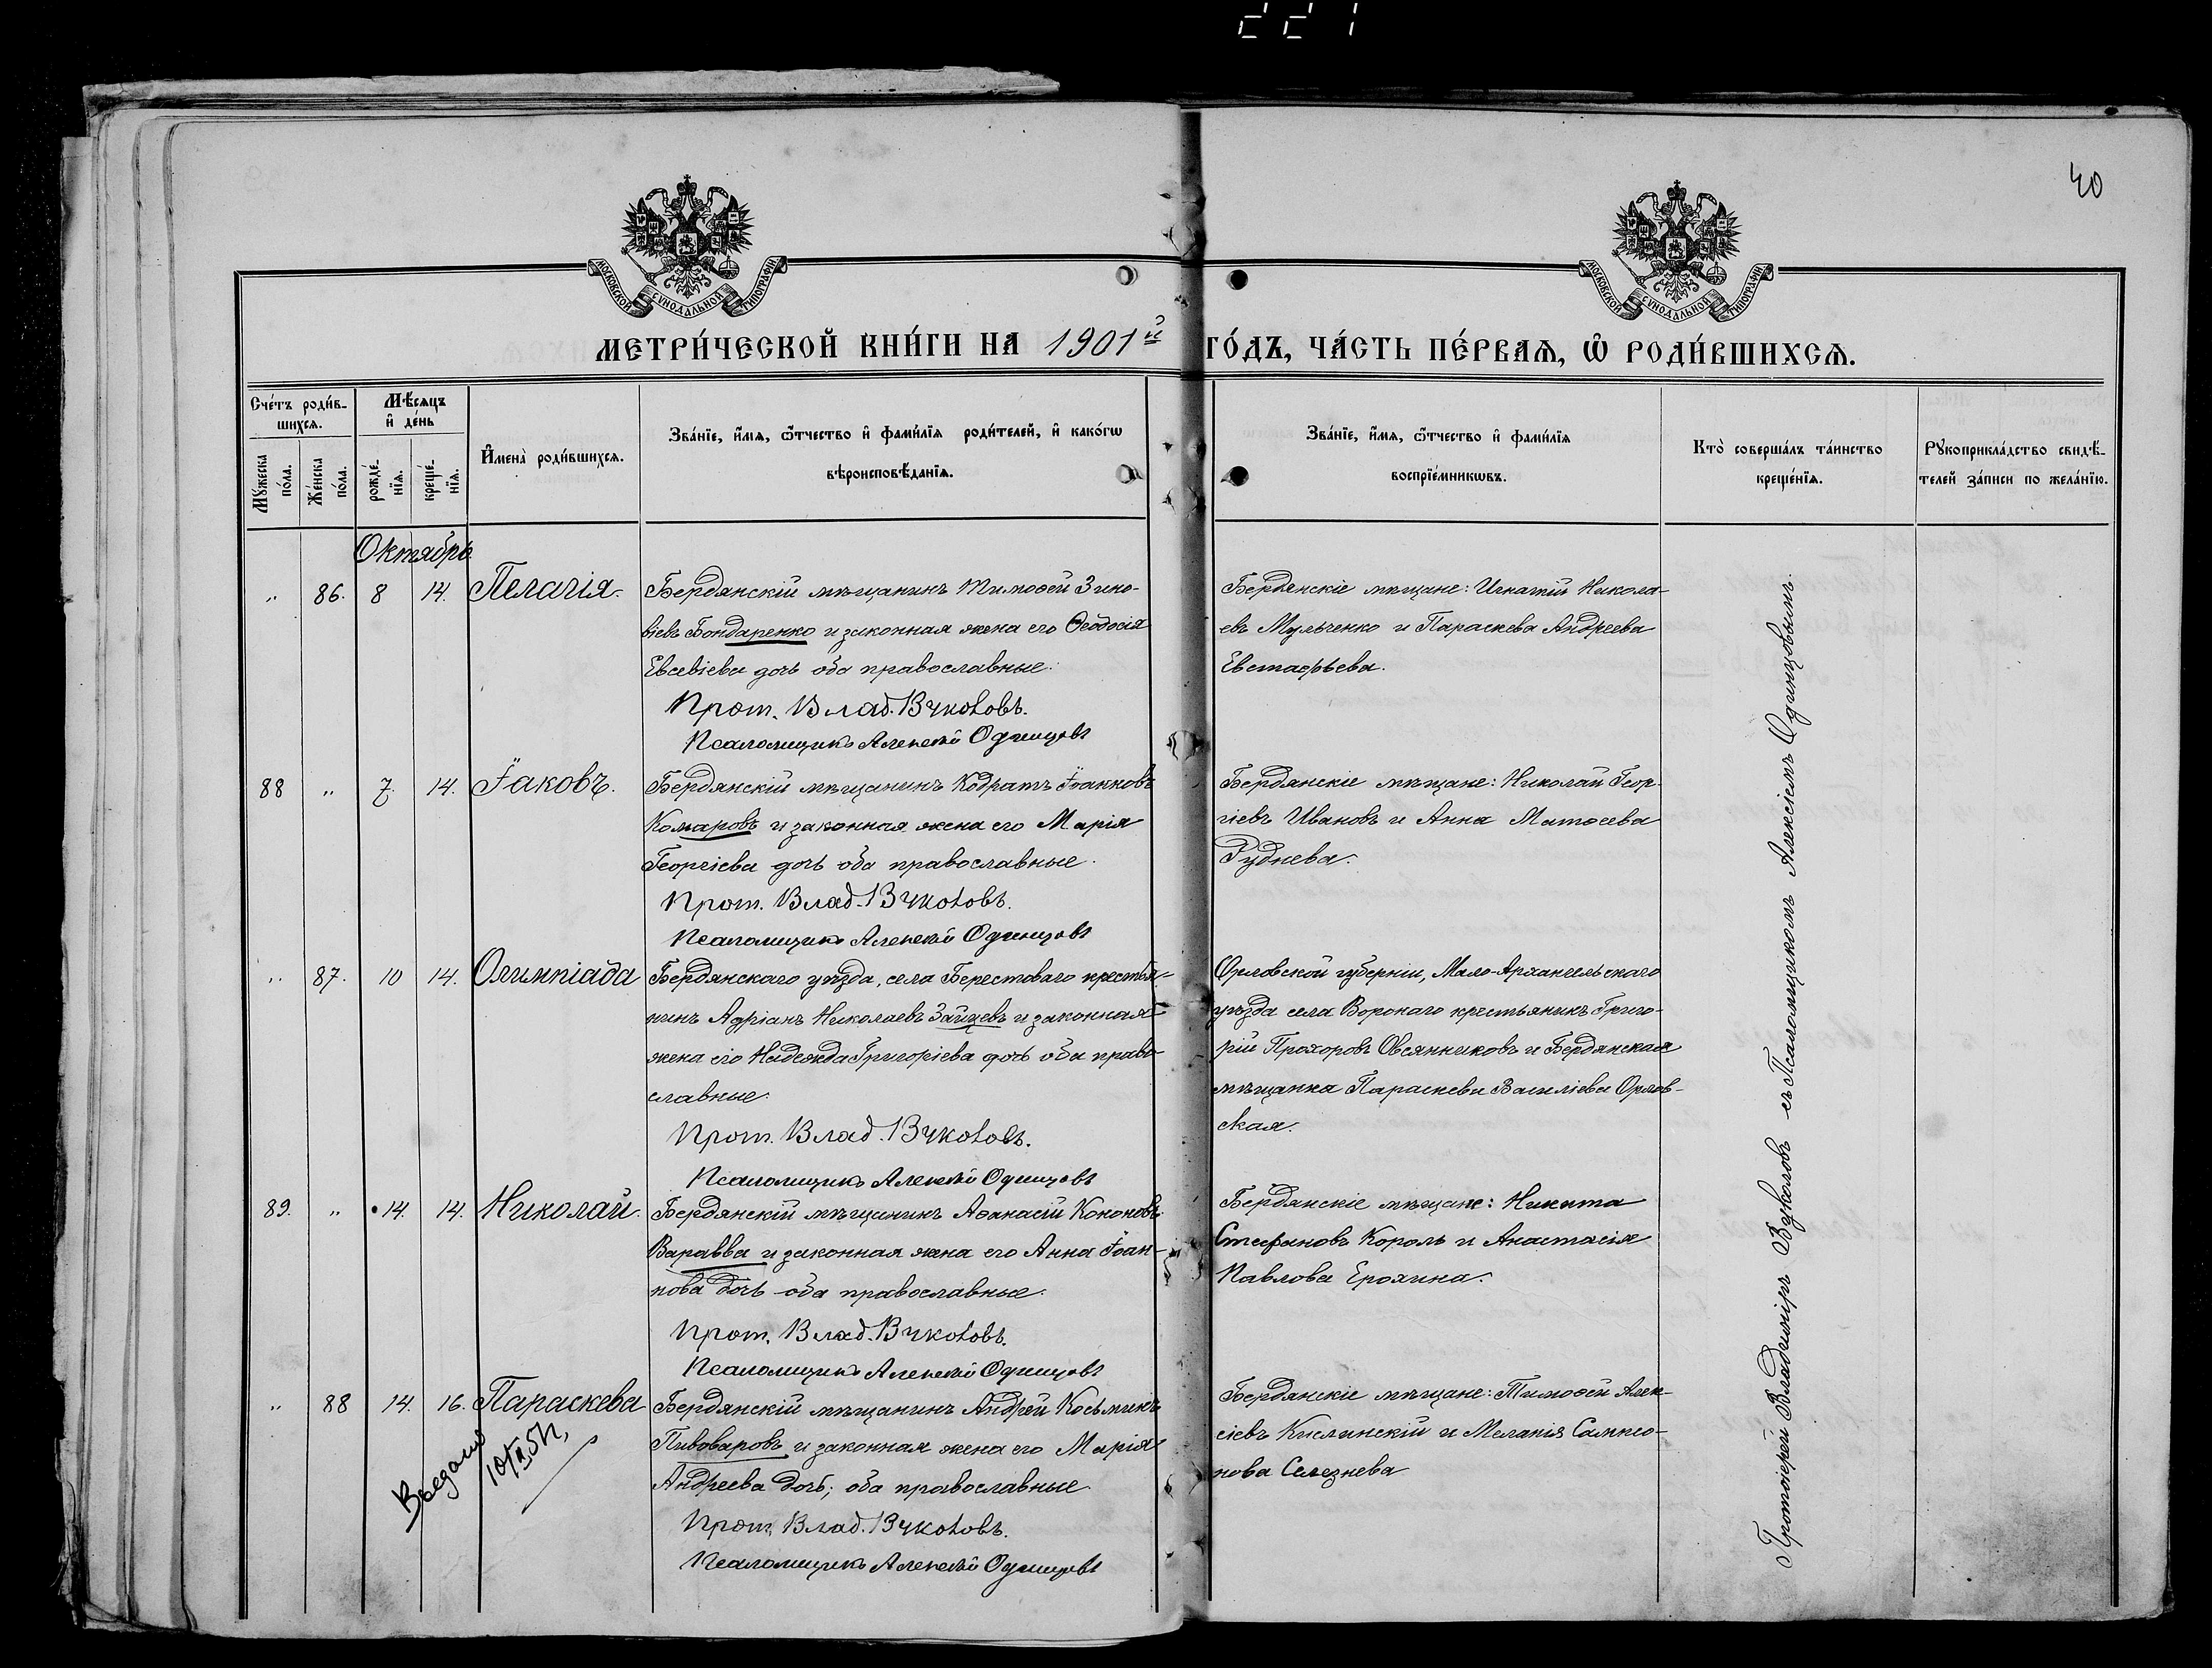 221
40
МОСКОВСКОЙ СѴНОДАЛЬНОЙ ТИПОГРАФІИ
МОСКОВСКОЙ СѴНОДАЛЬНОЙ ТИПОГРАФІИ
МЕТРИ́ЧЕСКОЙ КНИ́ГИ НА 1901й ГО́ДЪ, ЧА́СТЬ ПЕ́РВАѦ, Ѡ҆ РОДИ́ВШИХСѦ.
Сче́тъ роди́в-
шихсѧ.
Мѣ́сѧцъ
и҆ де́нь
Му́жеска
по́ла.
Же́нска
по́ла.
рожде́-
нїѧ.
креще́-
нїѧ.
И҆мена̀ роди́вшихсѧ.
Зва́нїе, и҆́мѧ, ѻ҆́тчество и҆ фами́лїѧ роди́телей, и҆ како́гѡ
вѣроисповѣ́данїѧ.
Зва́нїе, и҆́мѧ, ѻ҆́тчество и҆ фами́лїѧ
воспрїе́мникѡвъ.
Кто̀ соверша́лъ та́инство
креще́нїѧ.
Рꙋкоприкла́дство свидѣ́-
телей за́писи по жела́нїю.
Октябрь
„ 86. 8 14. Пелагія. Бердянскій мѣщанинъ Тимоѳей Зино-
віевъ Бондаренко и законная жена его Ѳеодосія
Евсевіева дочь оба православные.
Прот. Влад. Вуколовъ.
Псаломщикъ Алексѣй Одинцовъ
Бердянскіе мѣщане: Игнатій Никола-
евъ Мульченко и Параскева Андреева
Евстафьева.
88 „ 7. 14. Іаковъ. Бердянскій мѣщанинъ Кодратъ Іоанновъ
Комаровъ и законная жена его Марія
Георгіева дочь оба православные.
Прот. Влад. Вуколовъ.
Псаломщикъ Алексѣй Одинцовъ
Бердянскіе мѣщане: Николай Геор-
гіевъ Ивановъ и Анна Матѳеева
Руднева.
„ 87. 10 14. Олимпіада Бердянскаго уѣзда, села Берестоваго крестья-
нинъ Адріанъ Николаевъ Зайцевъ и законная
жена его Надежда Григоріева дочь оба право-
славные.
Прот. Влад. Вуколовъ.
Псаломщикъ Алексѣй Одинцовъ
Орловской губерніи, Мало-Архангельскаго
уѣзда села Воронаго крестьянинъ Григо-
рій Прохоровъ Овсянниковъ и Бердянская
мѣщанка Параскева Василіева Орлов-
ская.
89. „ 14. 14. Николай. Бердянскій мѣщанинъ Аѳанасій Кононовъ
Варавва и законная жена его Анна Іоан-
нова дочь оба православные.
Прот. Влад. Вуколовъ.
Псаломщикъ Алексѣй Одинцовъ
Бердянскіе мѣщане: Никита
Стефановъ Король и Анастасія
Павлова Ерохина.
„ 88 14. 16. Параскева Бердянскій мѣщанинъ Андрей Косьминъ
Пивоваровъ и законная жена его Марія
Андреева дочь; оба православные.
Прот. Влад. Вуколовъ.
Псаломщикъ Алексѣй Одинцовъ
Бердянскіе мѣщане: Тимоѳей Алек-
сіевъ Кислинскій и Меланія Сампсо-
нова Селезнева
Протоіерей Владиміръ Вуколовъ съ Псаломщикомъ Алексіемъ Одинцовымъ.